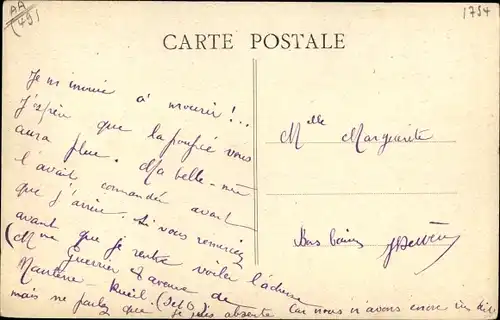 AA
(49)
1754
CARTE POSTALE
Je m'ennuie à mourir!...
J'espère que la poupée vous
aura plu. Ma belle-mère
l'avait commandée avant
que j'arrive. Si vous remerciez
avant que je rentre voilà l'adresse
(Mme Guerrier 8 avenue de
Nanterre - Rueil. (S et O)
mais ne parlez que je suis absente. Car nous n'avons encore
Melle Marguerite
Bons baisers